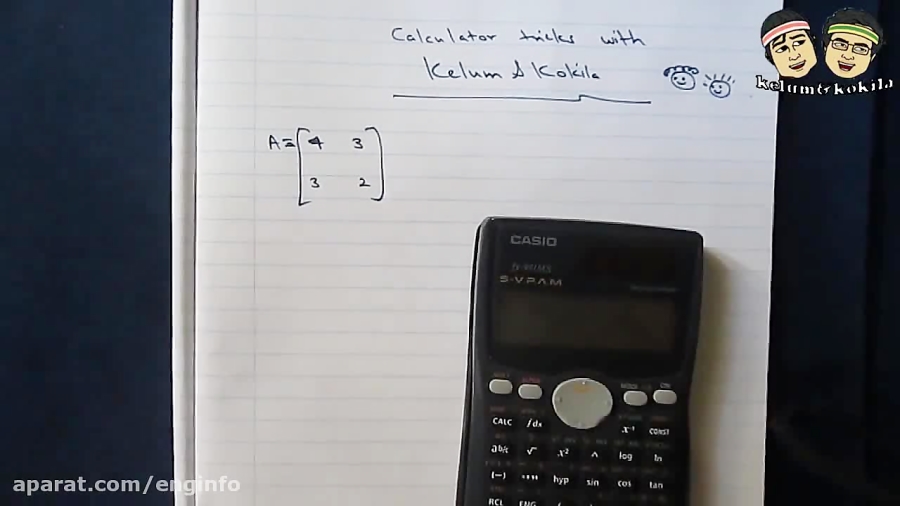 Calculator tricks with
Kelum & Kokila
kelum&kokila
A = [ 4 3
3 2 ]
CASIO
S-V.P.A.M.
CALC ∫dx x⁻¹ CONST
ab/c √ x² ^ log ln
(−) hyp sin cos tan
RCL ENG
aparat.com/enginfo